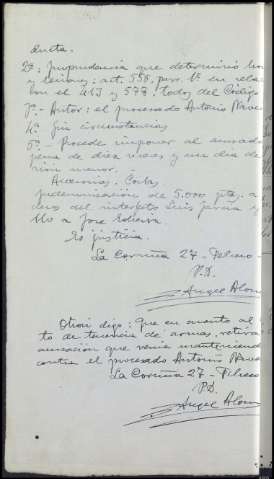 ducta.
2ª: Imprudencia que determinó ho
y lesiones: art. 558, parr. 1º en rela
con el 413 y 578: todos del Código
3ª.- Autor: el procesado Antonio Nave
4ª. Sin circunstancias
5ª.- Procede imponer al acusado
pena de diez meses y un día de
sión menor.
Accesorias. Costas.
Indemnización de 5.000 pts. a
deros del interfecto Luis y
a José
Es justicia.
La Coruña 27 - Febrero -
P.D.
Angel Alon
Otrosí digo: Que en cuanto al
to de tenencia de armas, retira
acusación que venía manteniendo
contra el procesado Antonio Nave
La Coruña 27 - Febrero
P.D.
Angel Alon